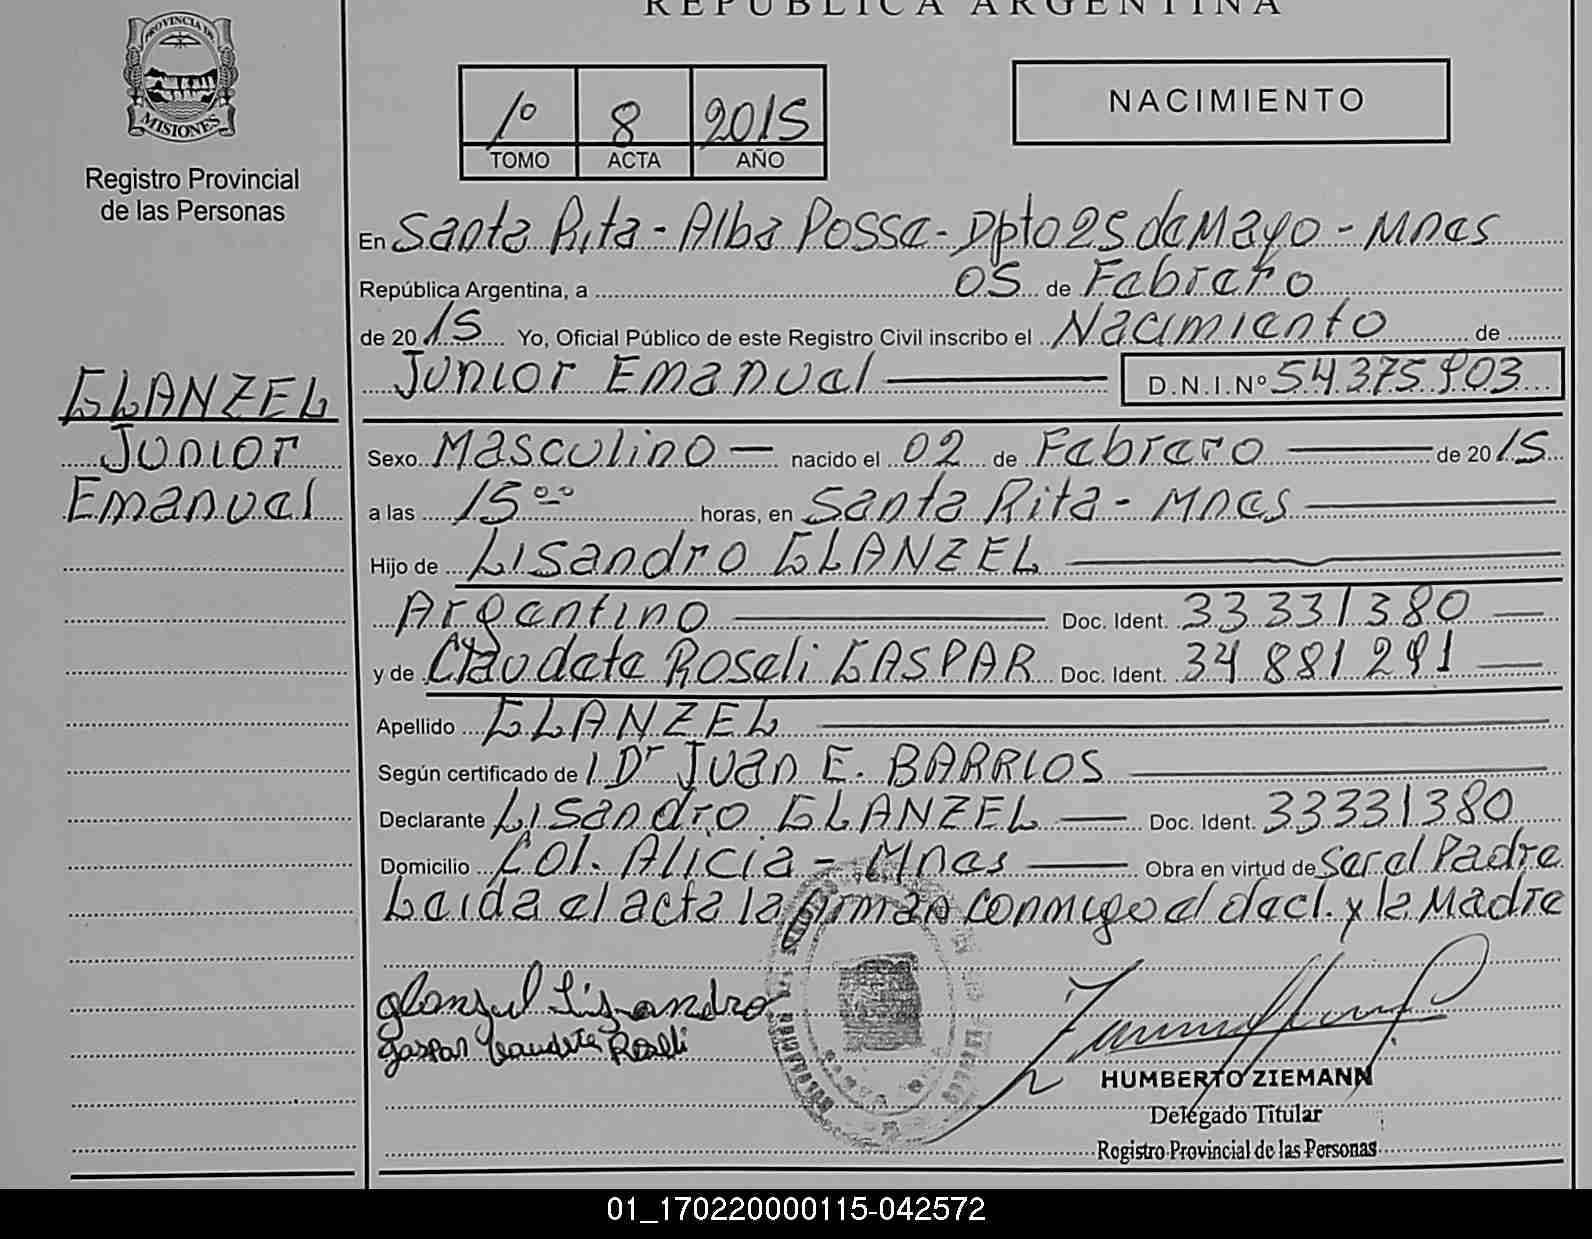 REPUBLICA ARGENTINA
PROVINCIA DE
MISIONES
Registro Provincial
de las Personas
1º 8 2015
TOMO ACTA AÑO
NACIMIENTO
En Santa Rita - Alba Posse - Dpto 25 de Mayo - Mnes
República Argentina, a 05 de Febrero
de 2015 Yo, Oficial Público de este Registro Civil inscribo el Nacimiento de
Junior Emanuel D.N.I.Nº 54.375.903
GLANZEL
Junior
Emanuel
Sexo Masculino nacido el 02 de Febrero de 2015
a las 15 ºº horas, en Santa Rita - Mnes
Hijo de Lisandro GLANZEL
Argentino Doc. Ident. 33 331 380
y de Claudete Roseli GASPAR Doc. Ident. 34 881 291
Apellido GLANZEL
Según certificado de 1 Dr Juan E. BARRIOS
Declarante Lisandro GLANZEL Doc. Ident. 33331380
Domicilio Col. Alicia - Mnes Obra en virtud de Ser el Padre
Leida el acta la firman conmigo el decl. y la Madre
Glanzel Lisandro
Gaspar Claudete Roseli
HUMBERTO ZIEMANN
Delegado Titular
Registro Provincial de las Personas
01_170220000115-042572